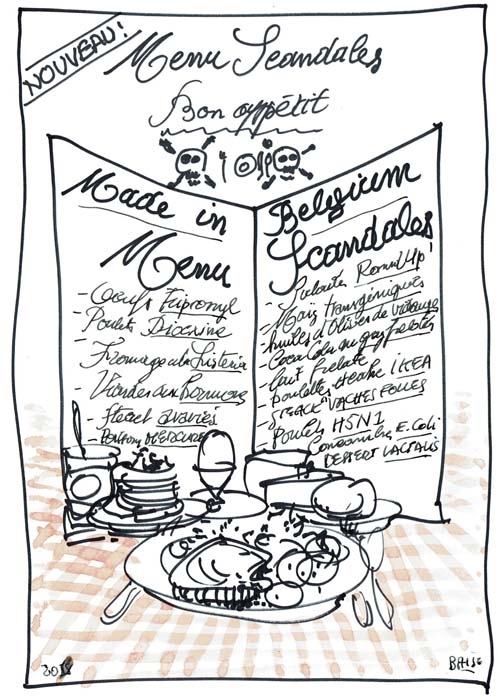 NOUVEAU!
Menu Scandales
Bon appétit
Made in
Menu
- Oeufs Fipronyl
- Poulets Dioxine
- Fromage à la Listeria
- Viandes aux Hormones
- Steack avariés
- Poisson MERCURE
Belgium
Scandales
- Patates RoundUp!
- Maïs transgéniques
- huiles d'Olives de Vidange
- Coca Cola au gaz frelatés
- Lait Frelaté
- boulettes cheval IKEA
- STEACK "VACHES FOLLES
- Poulet H5N1
- Concombre E. Coli
DESSERT LACTALIS